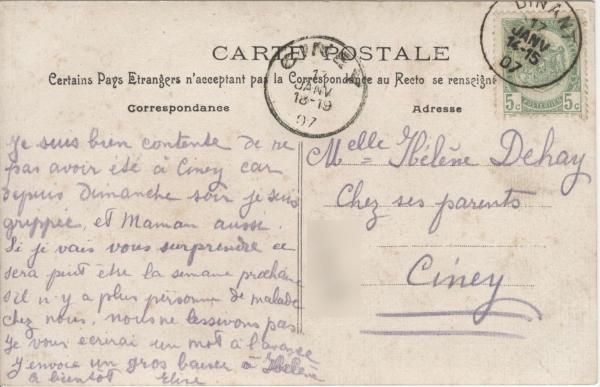 DINANT
17
JANV
12-15
07
5c 5c
CARTE POSTALE
CINEY
JANV
18-19
07
Certains Pays Etrangers n'acceptent pas la Correspondance au Recto se renseigne
Correspondance
Adresse
Je suis bien contente de ne
pas avoir été à Ciney car
depuis Dimanche soir je suis
grippée, et Maman aussi.
Si je vais vous surprendre ce
sera peut être la semaine prochaine
s'il n-y a plus personne de malade
chez nous, nous ne lessivons pas
Je vous ecrirai un mot à l'avance
J'envoie un gros baiser à Hélène
à bientôt Elise
Melle Hélène Dehay
Chez ses parents
Ciney